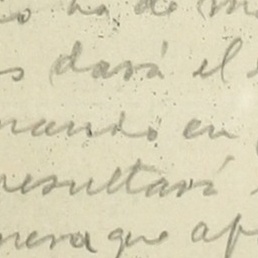 ha de
dará el
mando en
resultará
nera que ap